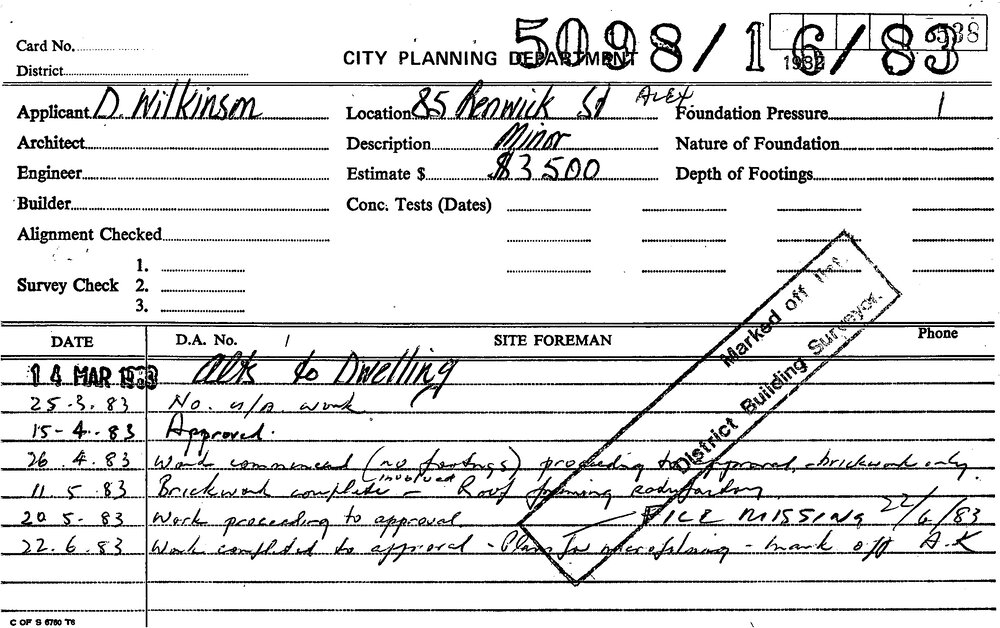 5098/16/83
538
Card No.
CITY PLANNING DEPARTMENT
1983
District
Applicant D. Wilkinson
Location 85 Renwick St ALEX
Foundation Pressure 1
Architect
Description Minor
Nature of Foundation
Engineer
Estimate $ $3500
Depth of Footings
Builder
Conc. Tests (Dates)
Alignment Checked
1.
Survey Check 2.
3.
DATE D.A. No. / SITE FOREMAN Phone
14 MAR 1983 Alts to Dwelling
25-3-83 No. u/a work
15-4-83 Approved.
26.4.83 Work commenced (no footings involved) proceeding to approval, brickwork only
11.5.83 Brickwork complete - Roof framing satisfactory
20 5-83 Work proceeding to approval FILE MISSING 22/6/83
22.6.83 Work completed to approval - Plans for microfilming - mark off A.K
Marked off list.
District Building Surveyor.
C OF S 6760 T6